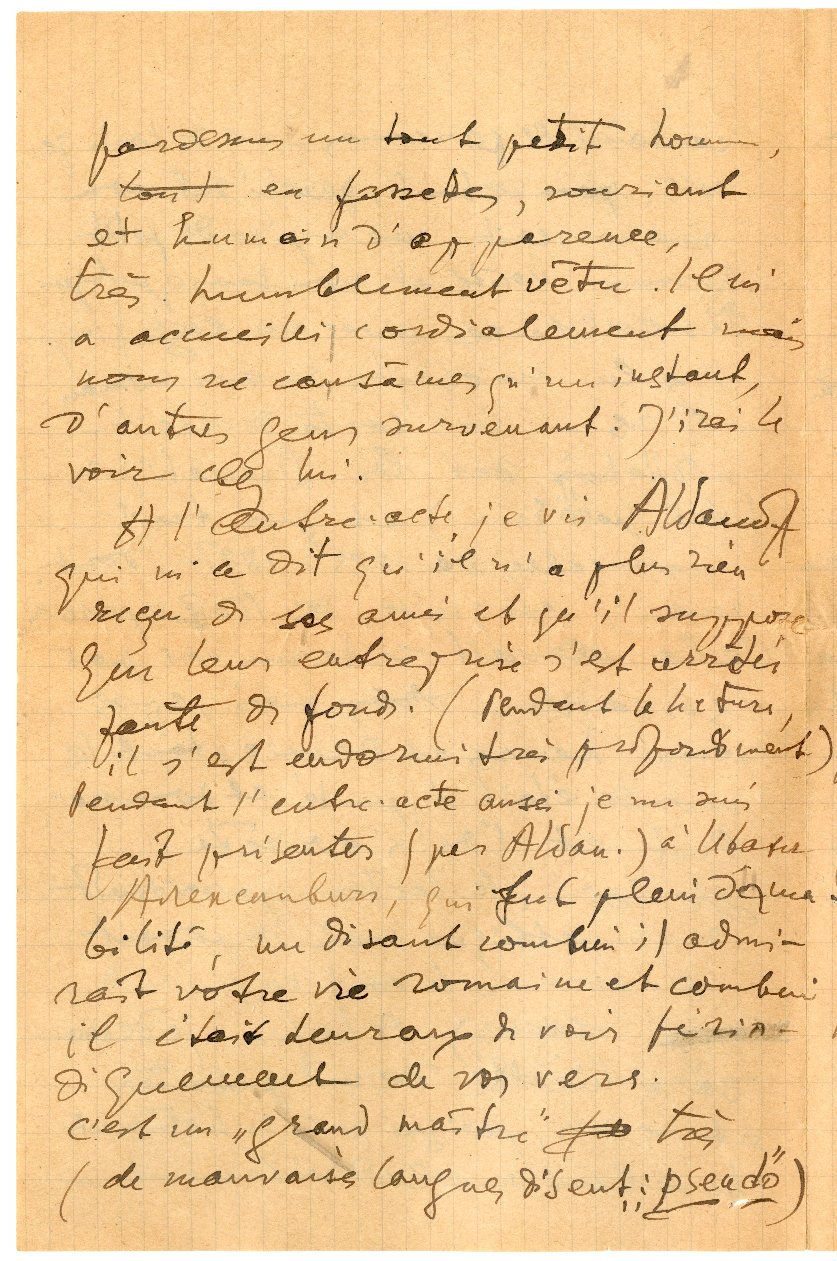 pardessus un tout petit homme,
tout en fossettes, souriant
et humain d'apparence,
très humblement vêtu. Il m'
a accueilli cordialement mais
nous ne causâmes qu'un instant,
d'autres gens survenant. J'irai le
voir chez lui.
A l'Entre-acte, je vis Aldanoff
qui m'a dit qu'il n'a plus rien
reçu de ses amis et qu'il suppose
que leur entreprise s'est arrêtée
faute de fonds. (Pendant la lecture,
il s'est endormi très profondément)
Pendant l'entre-acte aussi je me suis
fait présenter (par Aldan.) à
qui fut plein d'ama-
bilité, me disant combien il admi-
rait votre vie romaine et combien
il était heureux de voir pério-
diquement de vos vers.
C'est un „grand maître" très
(de mauvaises langues disent : „pseudo")